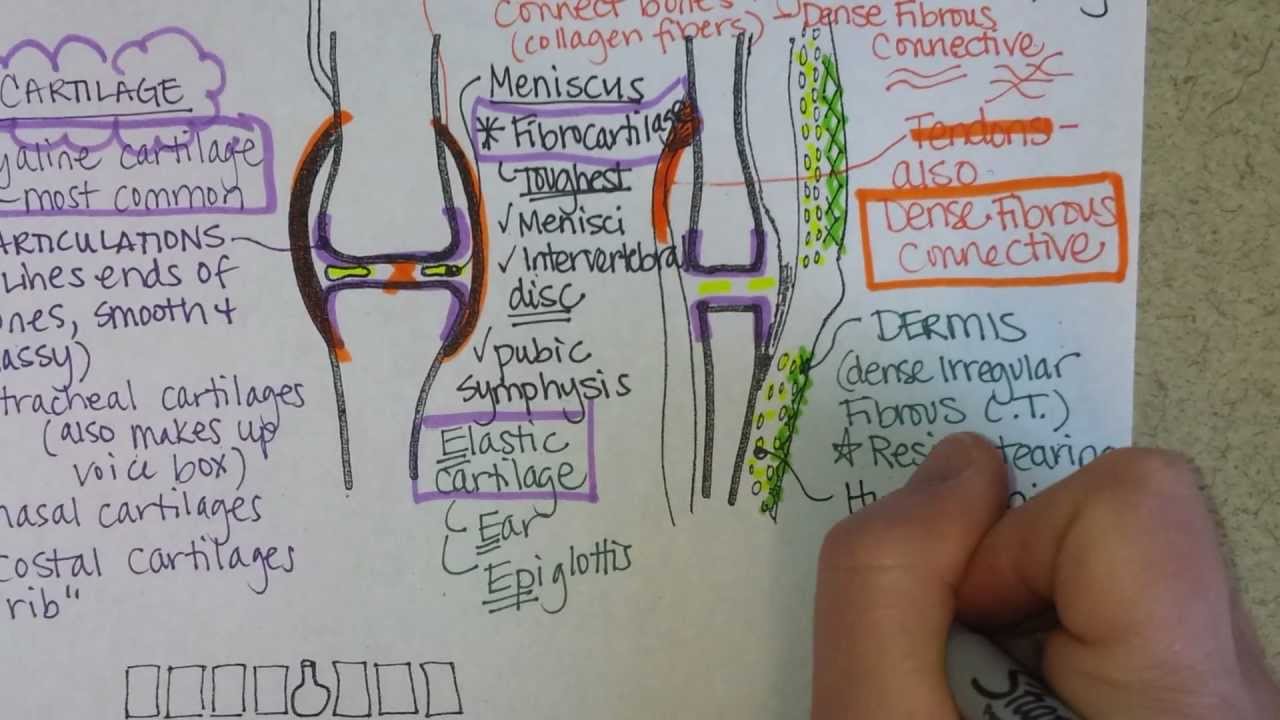 CARTILAGE
yaline cartilage
-most common
ARTICULATIONS
Lines ends of
ones, smooth +
assy)
tracheal cartilages
(also makes up
voice box)
nasal cartilages
costal cartilages
rib"
Connect bones
(collagen fibers)
Meniscus
* Fibrocartilage
Toughest
✓ Menisci
✓ Intervertebral
disc
✓ pubic
symphysis
Elastic
cartilage
Ear
Epiglottis
Dense Fibrous
Connective
Tendons -
also
Dense Fibrous
Connective
DERMIS
(dense Irregular
Fibrous C.T.)
tearing